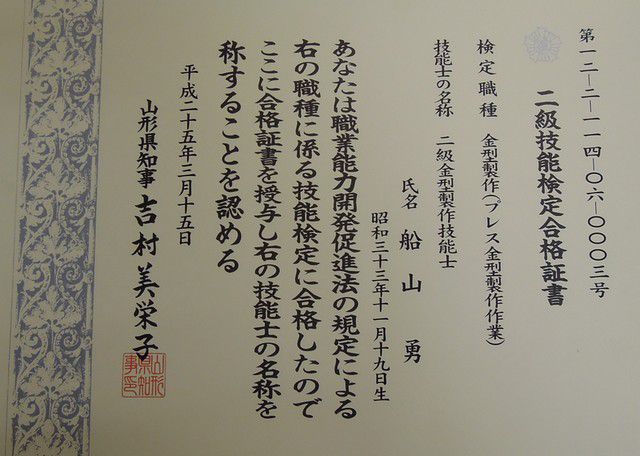 第一二―二―一一四―〇六―〇〇〇三号
二級技能検定合格証書
検定職種 金型製作(プレス金型製作作業)
技能士の名称 二級金型製作技能士
氏名 船山 勇
昭和三十三年十一月十九日生
あなたは職業能力開発促進法の規定による
右の職種に係る技能検定に合格したので
ここに合格証書を授与し右の技能士の名称を
称することを認める
平成二十五年三月十五日
山形県知事 吉村美栄子
山形
県知
事印